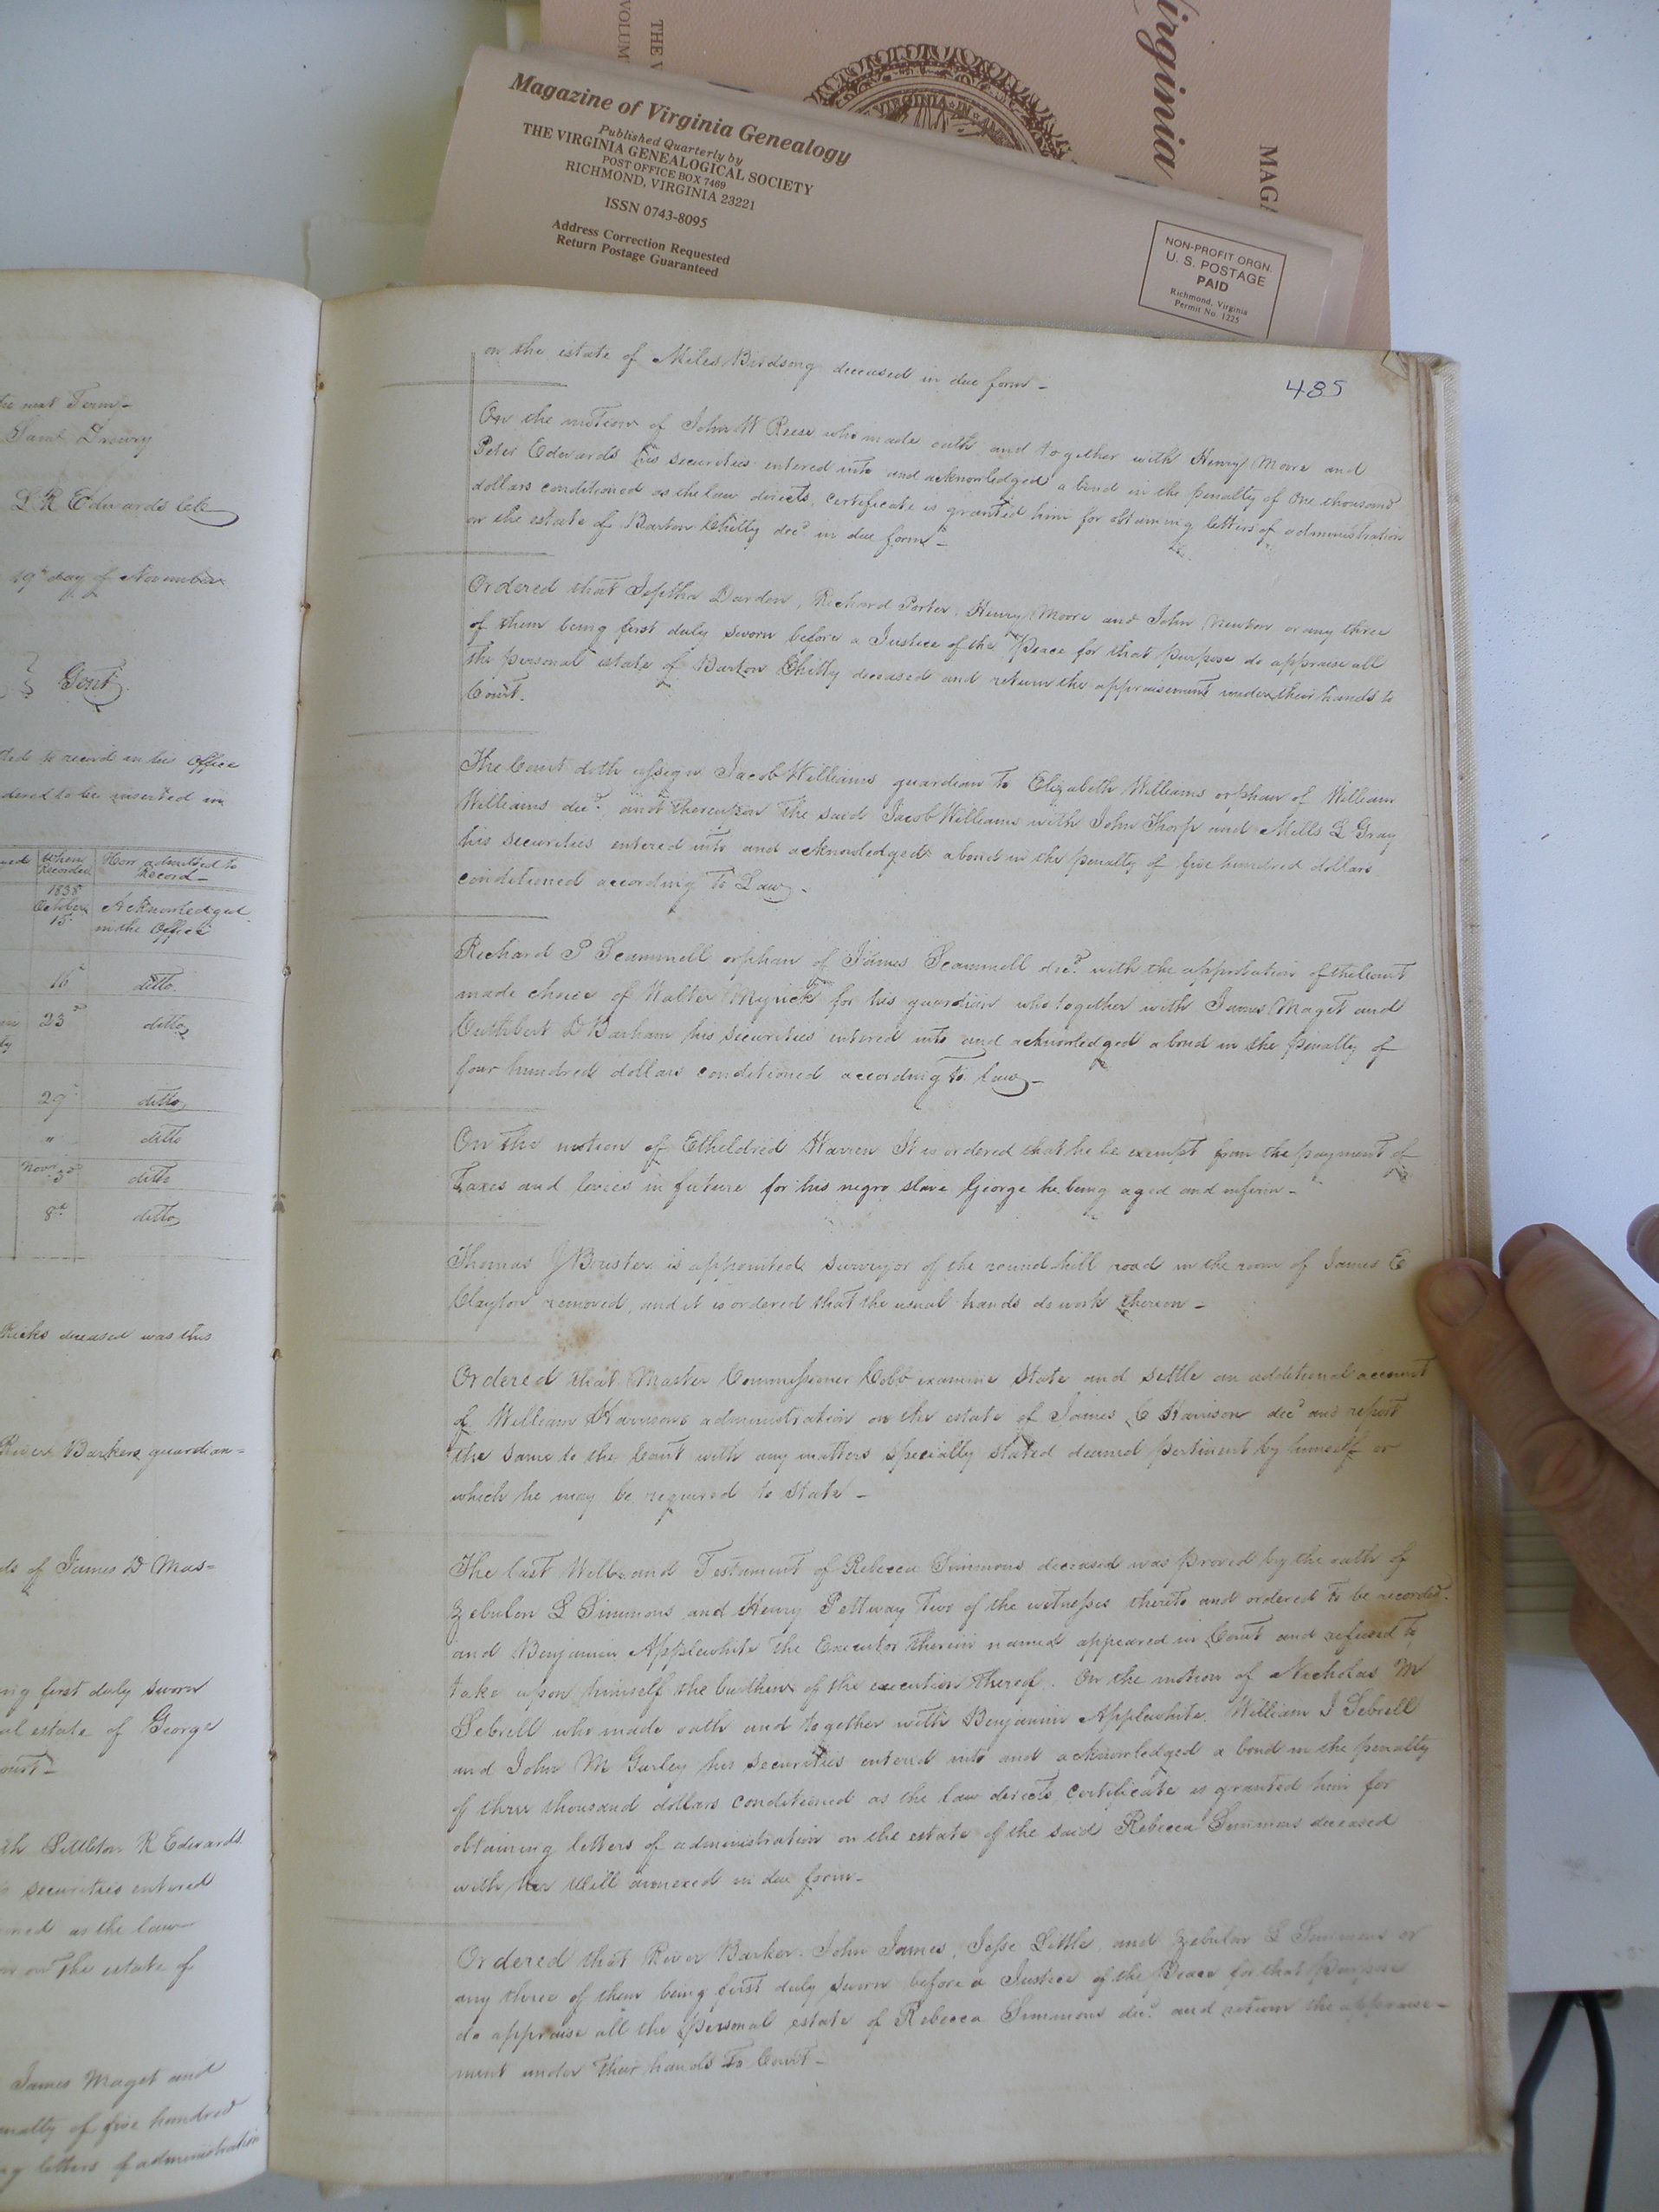 Virginia
MAGA
THE V
VOLUM
VIRGINIA IN
Magazine of Virginia Genealogy
Published Quarterly by
THE VIRGINIA GENEALOGICAL SOCIETY
POST OFFICE BOX 7469
RICHMOND, VIRGINIA 23221
ISSN 0743-8095
Address Correction Requested
Return Postage Guaranteed
NON-PROFIT ORGN.
U. S. POSTAGE
PAID
Richmond, Virginia
Permit No. 1225
next Term-
Saml Drewry
L R Edwards Clk
19th day of November
Gent.
to record in his Office
dered to be inserted in
when Recorded
How admitted to Record-
1838
October 15
Acknowledged in the Office
16
ditto.
23
ditto
29
ditto
"
ditto
Novr 3
ditto
8th
ditto
Ricks deceased was this
River Barkers guardian=
ds of James D Mas=
ing first duly sworn
al estate of George
ourt-
th Littleton R Edwards
securities entered
as the law
on the estate of
James Maget and
nalty of five hundred
letters of administration
485
on the estate of Miles Birdsong deceased in due form-
On the motion of John W Reese who made oath and together with Henry Moore and
Peter Edwards his securities entered into and acknowledged a bond in the penalty of One thousand
dollars conditioned as the law directs, certificate is granted him for obtaining letters of administration
on the estate of Barton Chitty decd in due form-
Ordered that Jeptha Darden, Richard Porter, Henry Moore and John Newton or any three
of them being first duly sworn before a Justice of the Peace for that purpose do appraise all
the personal estate of Barton Chitty deceased and return the appraisement under their hands to
Court.
The Court doth assign Jacob Williams guardian to Elizabeth Williams orphan of William
Williams decd. and thereupon the said Jacob Williams with John Thorp and Mills L Gray
his securities entered into and acknowledged a bond in the penalty of five hundred dollars
conditioned according to Law-
Richard P Scammell orphan of James Scammell decd. with the approbation of the Court
made choice of Walter Myrick for his guardian who together with James Maget and
Cuthbert D Barham his securities entered into and acknowledged a bond in the penalty of
four hundred dollars conditioned according to law-
On the motion of Etheldred Warren It is ordered that he be exempt from the payment of
Taxes and levies in future for his negro slave George he being aged and infirm-
Thomas J Brister is appointed surveyor of the round hill road in the room of James C
Clayton removed, and it is ordered that the usual hands do work thereon-
Ordered that Master Commissioner Cobb examine State and settle an additional account
of William Harrisons administration on the estate of James C Harrison decd and report
the same to the Court with any matters specially stated deemed pertinent by himself or
which he may be required to state-
The last Will and Testament of Rebecca Simmons deceased was proved by the oath of
Zebulon L Simmons and Henry Pettway two of the witnesses thereto and ordered to be recorded.
and Benjamin Applewhite the Executor therein named appeared in Court and refused to
take upon himself the burthen of the execution thereof. On the motion of Nicholas M
Sebrell who made oath and together with Benjamin Applewhite, William J Sebrell
and John M Gurley his securities entered into and acknowledged a bond in the penalty
of three thousand dollars conditioned as the law directs, certificate is granted him for
obtaining letters of administration on the estate of the said Rebecca Simmons deceased
with her Will annexed in due form-
Ordered that River Barker, John James, Jesse Little, and Zebulon L Simmons or
any three of them being first duly sworn before a Justice of the Peace for that purpose
do appraise all the personal estate of Rebecca Simmons decd. and return the appraise-
ment under their hands to Court-